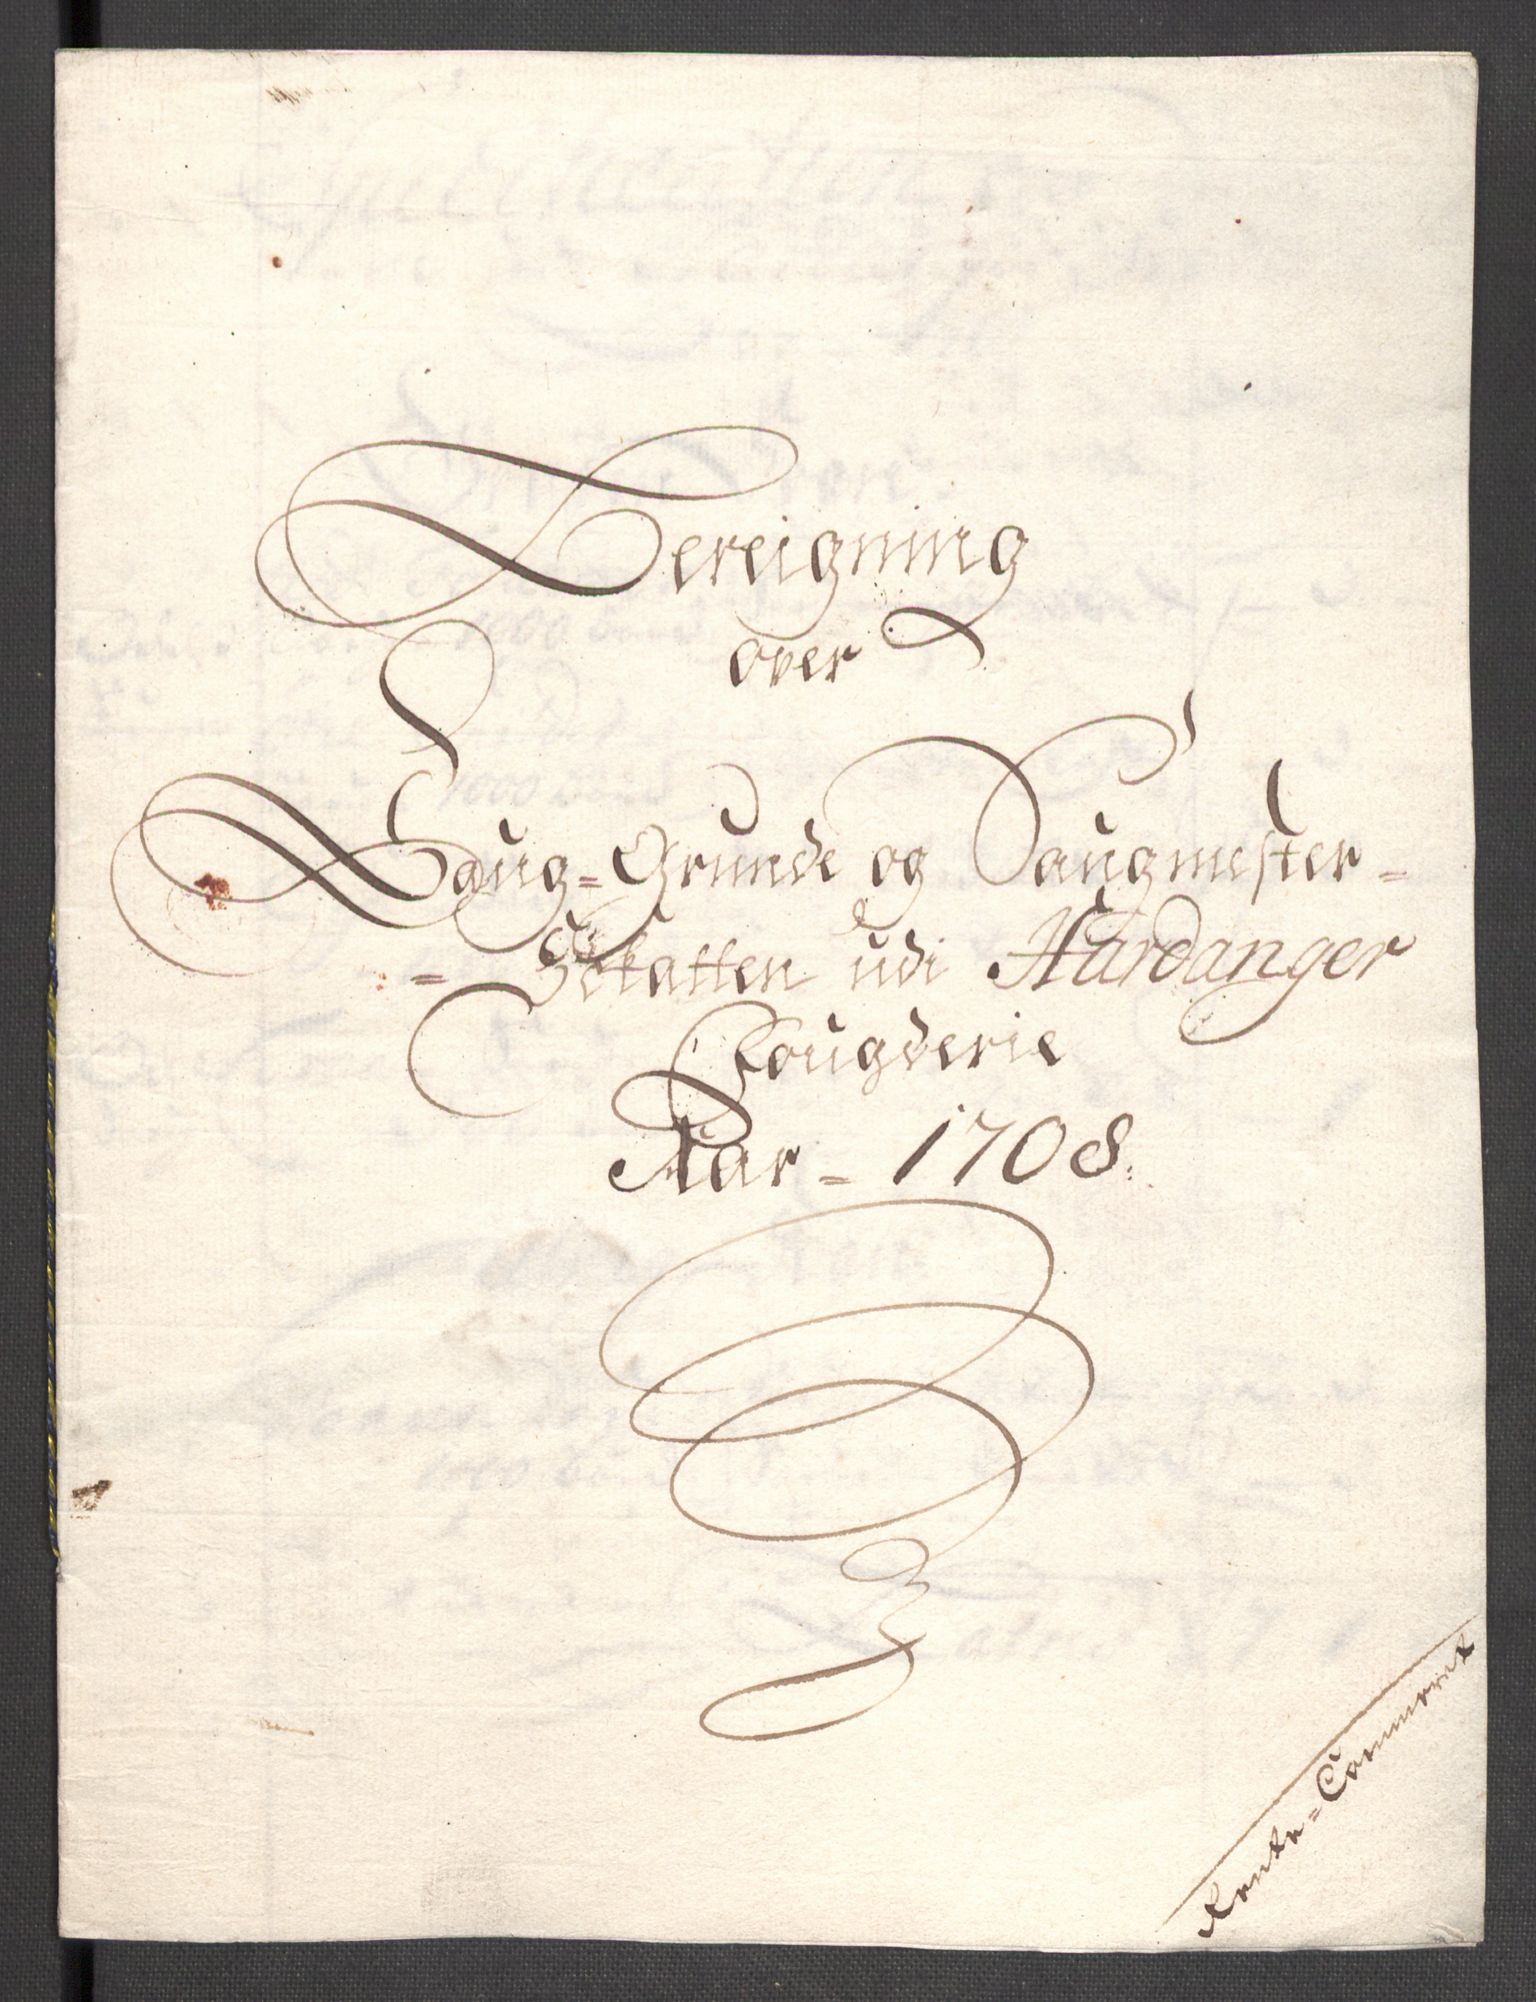 Bereigning
over
Saug-Grunde og Saugmester-
-Schatten udi Hardanger
Fougderie
Aar - 1708.
Rente-Cammeret